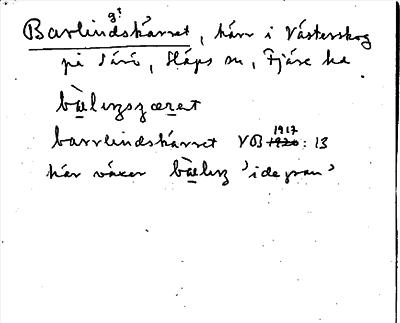 Barlindskärret, kärr i Västerskog
på Särö, Släps sn, Fjäre hd
bàlınszærət
barrlindskärret VB 1917 : 13
här växer bàlıns 'idegran'